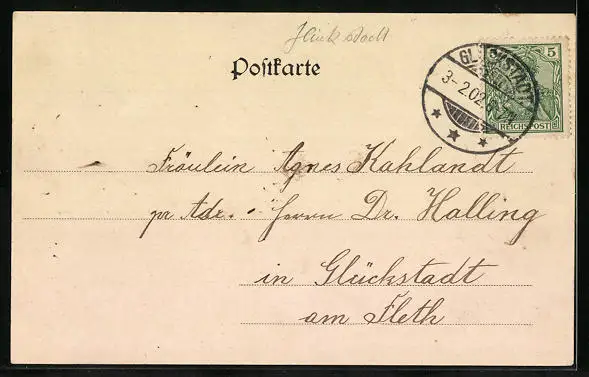 Glückstadt
Postkarte
GLÜCKSTADT
3-2.02
5
REICHSPOST
Fräulein Agnes Kahlandt
pr Adr. Herrn Dr. Halling
in Glückstadt
am Fleth